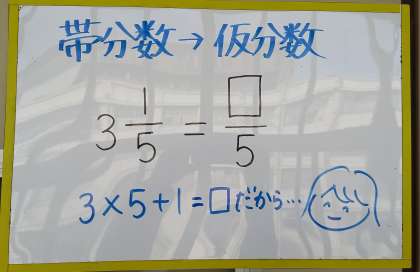 帯分数→仮分数
3 1/5 = □/5
3×5+1=□だから…